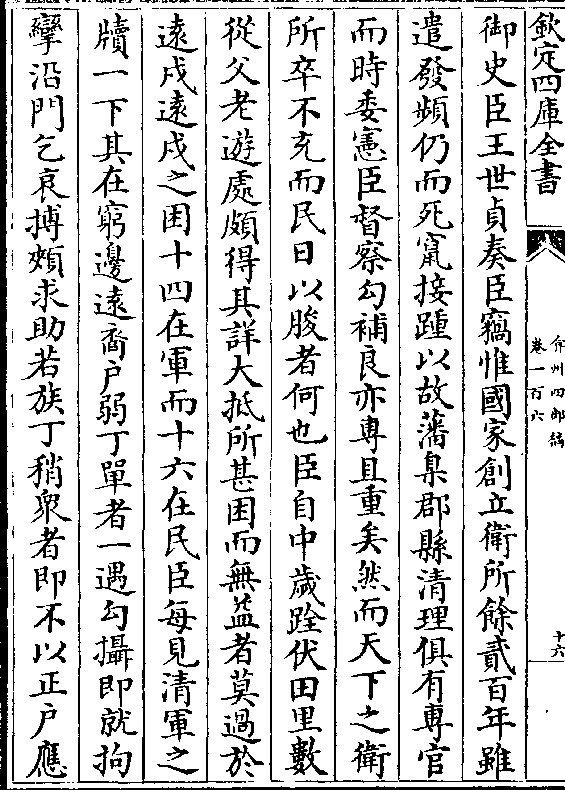 欽定四庫全書
弇州四部稿
卷一百六
十六
御史臣王世貞奏臣竊惟國家創立衛所餘貳百年雖
遣發頻仍而死竄接踵以故藩臬郡縣清理俱有專官
而時委憲臣督察勾補良亦專且重矣然而天下之衛
所卒不充而民日以朘者何也臣自中歲跧伏田里數
從父老遊處頗得其詳大抵所甚困而無益者莫過於
遠戍遠戍之困十四在軍而十六在民臣每見清軍之
牘一下其在窮邊遠裔户弱丁單者一遇勾攝即就拘
攣沿門乞哀搏頰求助若族丁稍衆者即不以正户應